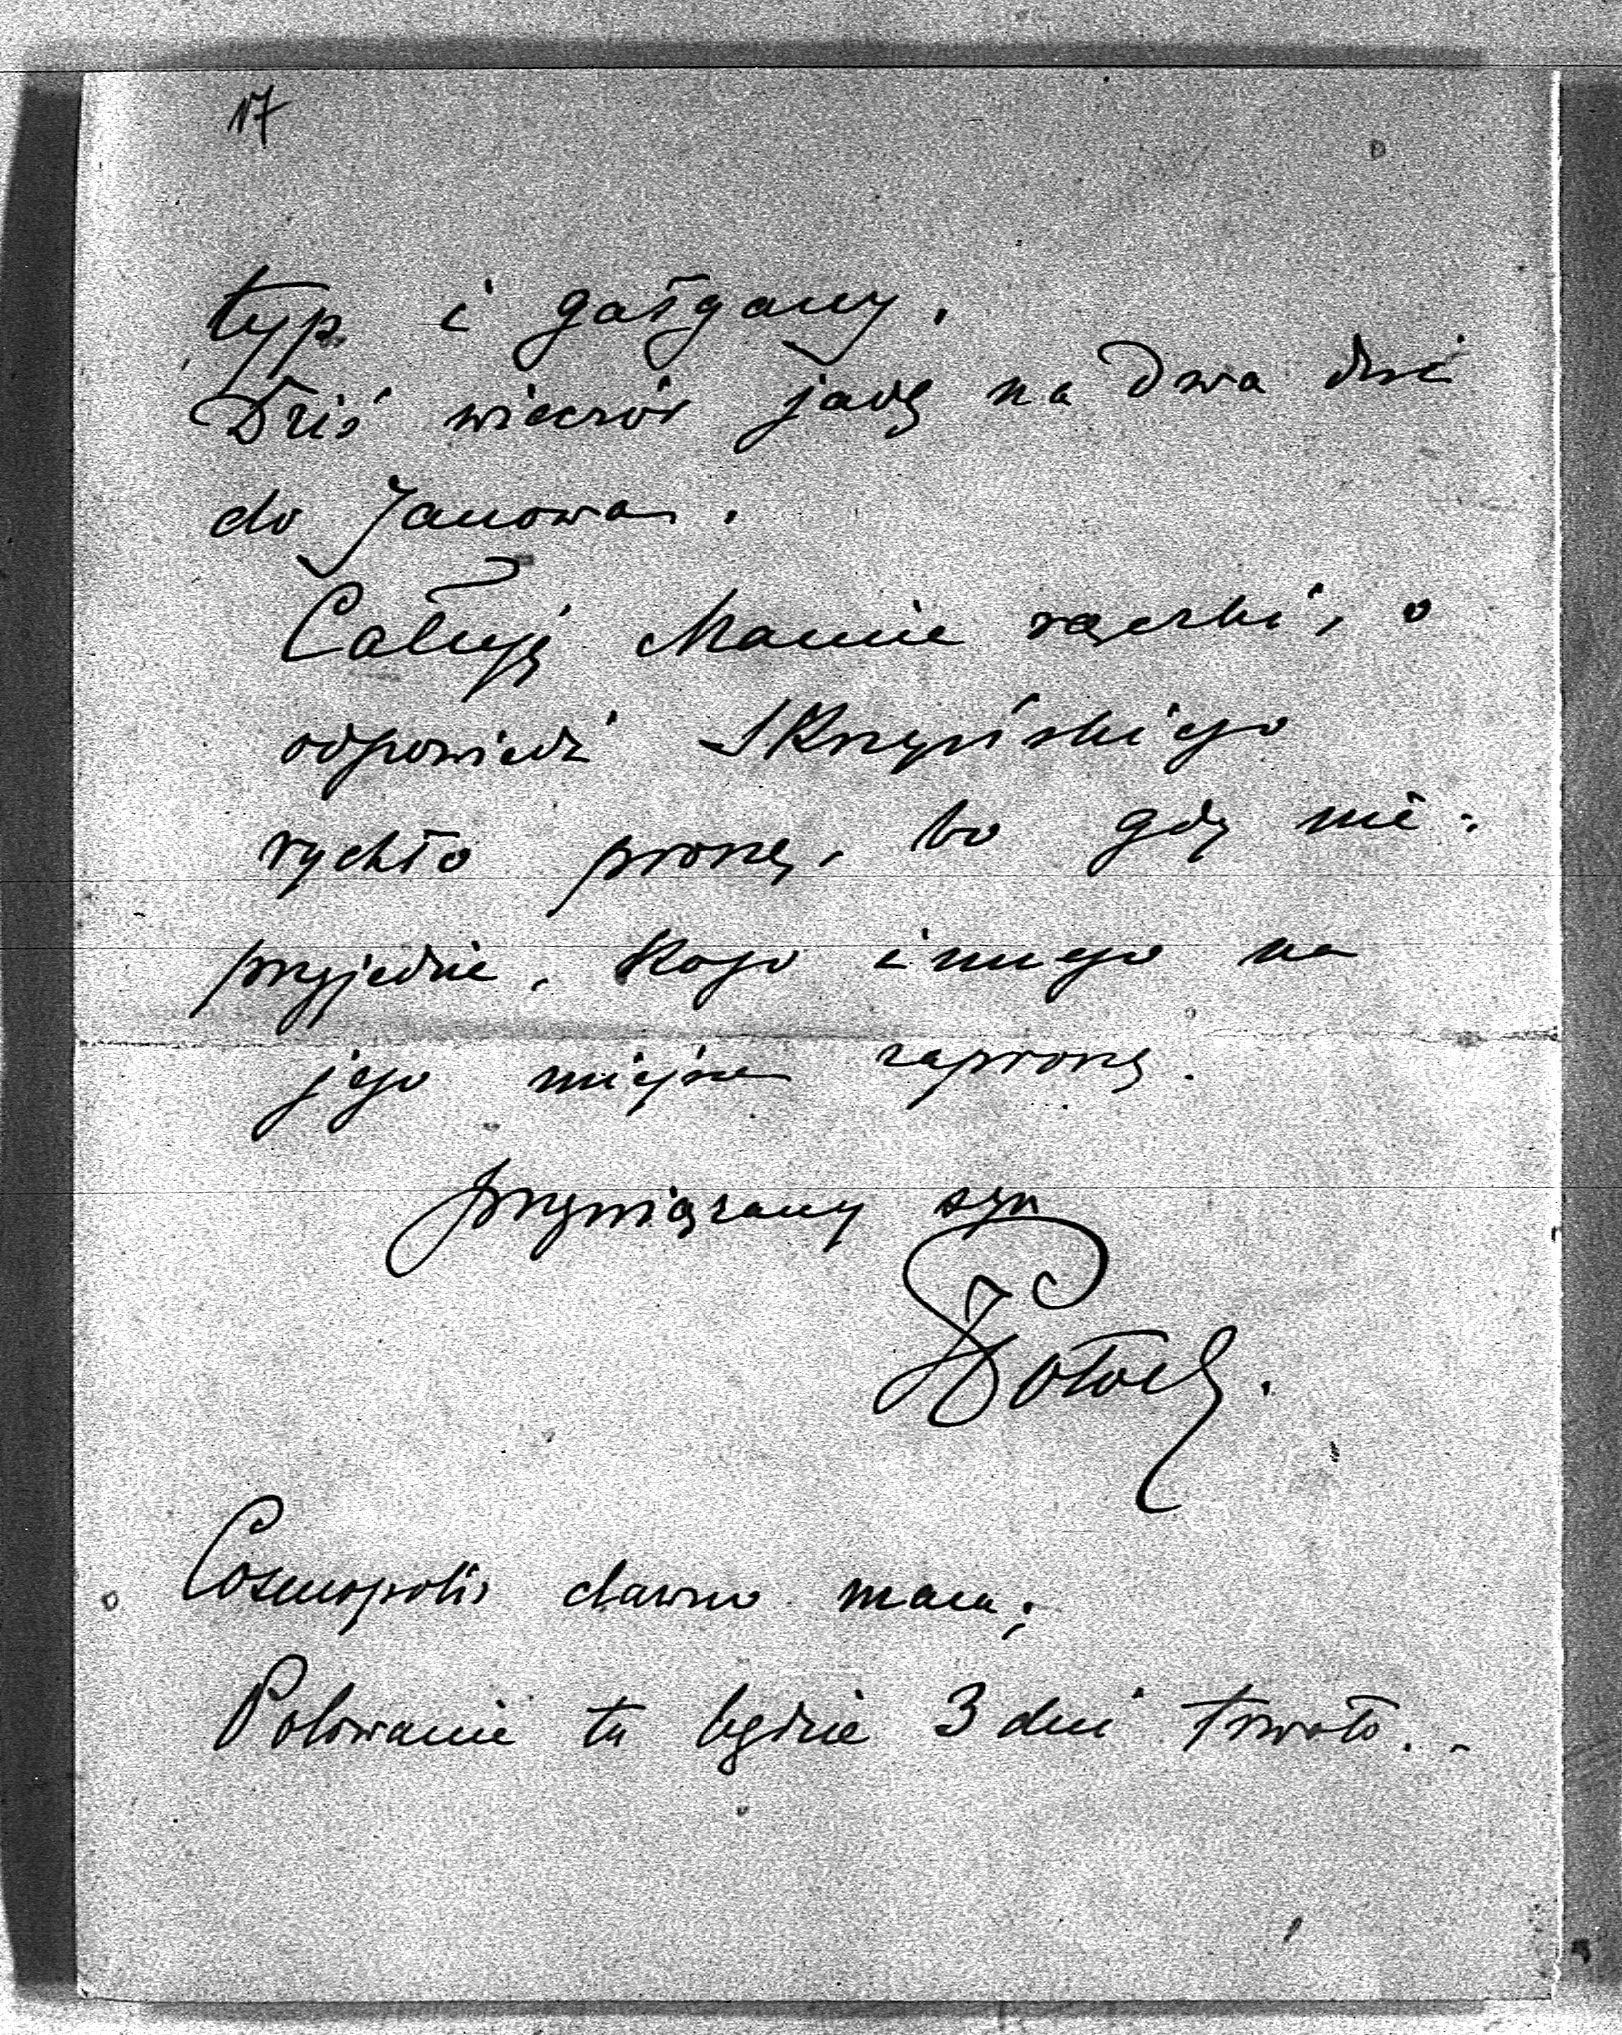 17
typ i gałgany.
Dziś wieczór jadę na dwa dni
do Janowa.
Całuję Mamie rączki, o
odpowiedź Skrzyńskiego
rychło proszę, bo gdy nie
przyjedzie, kogo innego na
jego miejsce zaproszę.
przywiązany syn
Potocki.
Cosmopolis dawno mam;
Polowanie tu będzie 3 dni trwało..